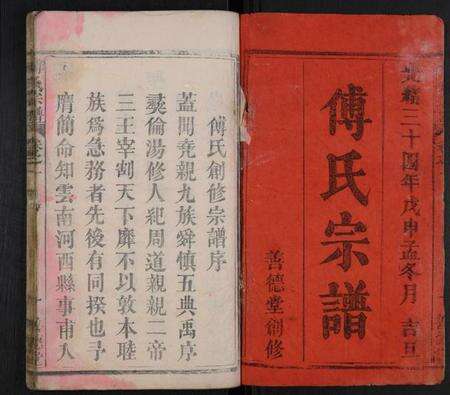 光緒三十四年戊申孟冬月吉旦
傅氏宗譜
善德堂創修
傅氏創修宗譜序
蓋聞堯親九族舜慎五典禹序
彝倫湯修人紀周道親親二帝
三王宰割天下靡不以敦本睦
族爲急務者先後有同揆也予
膺簡命知雲南河西縣事甫入